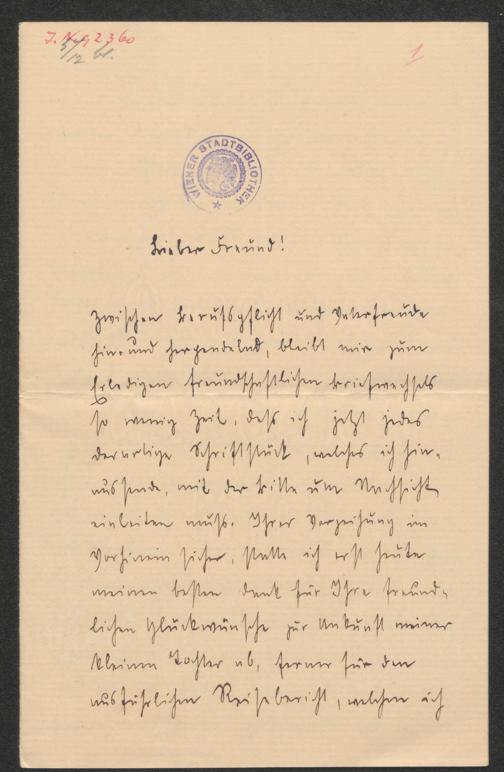 J. N. 92360
5/12 61.
1
WIENER STADTBIBLIOTHEK
Lieber Freund!
Zwischen Berufspflicht und Vaterfreude
hin- und herpendelnd, bleibt mir zum
Erledigen freundschaftlichen Briefwechsels
so wenig Zeit, dass ich jetzt jedes
derartige Schriftstück, welches ich hin-
aus sende, mit der Bitte um Nachsicht
einleiten muss. Ihrer Verzeihung im
Vorhinein sicher, statte ich erst heute
meinen besten Dank für Ihre freund-
lichen Glückwünsche zur Ankunft meiner
kleinen Tochter ab, ferner für den
ausführlichen Reisebericht, welchen ich